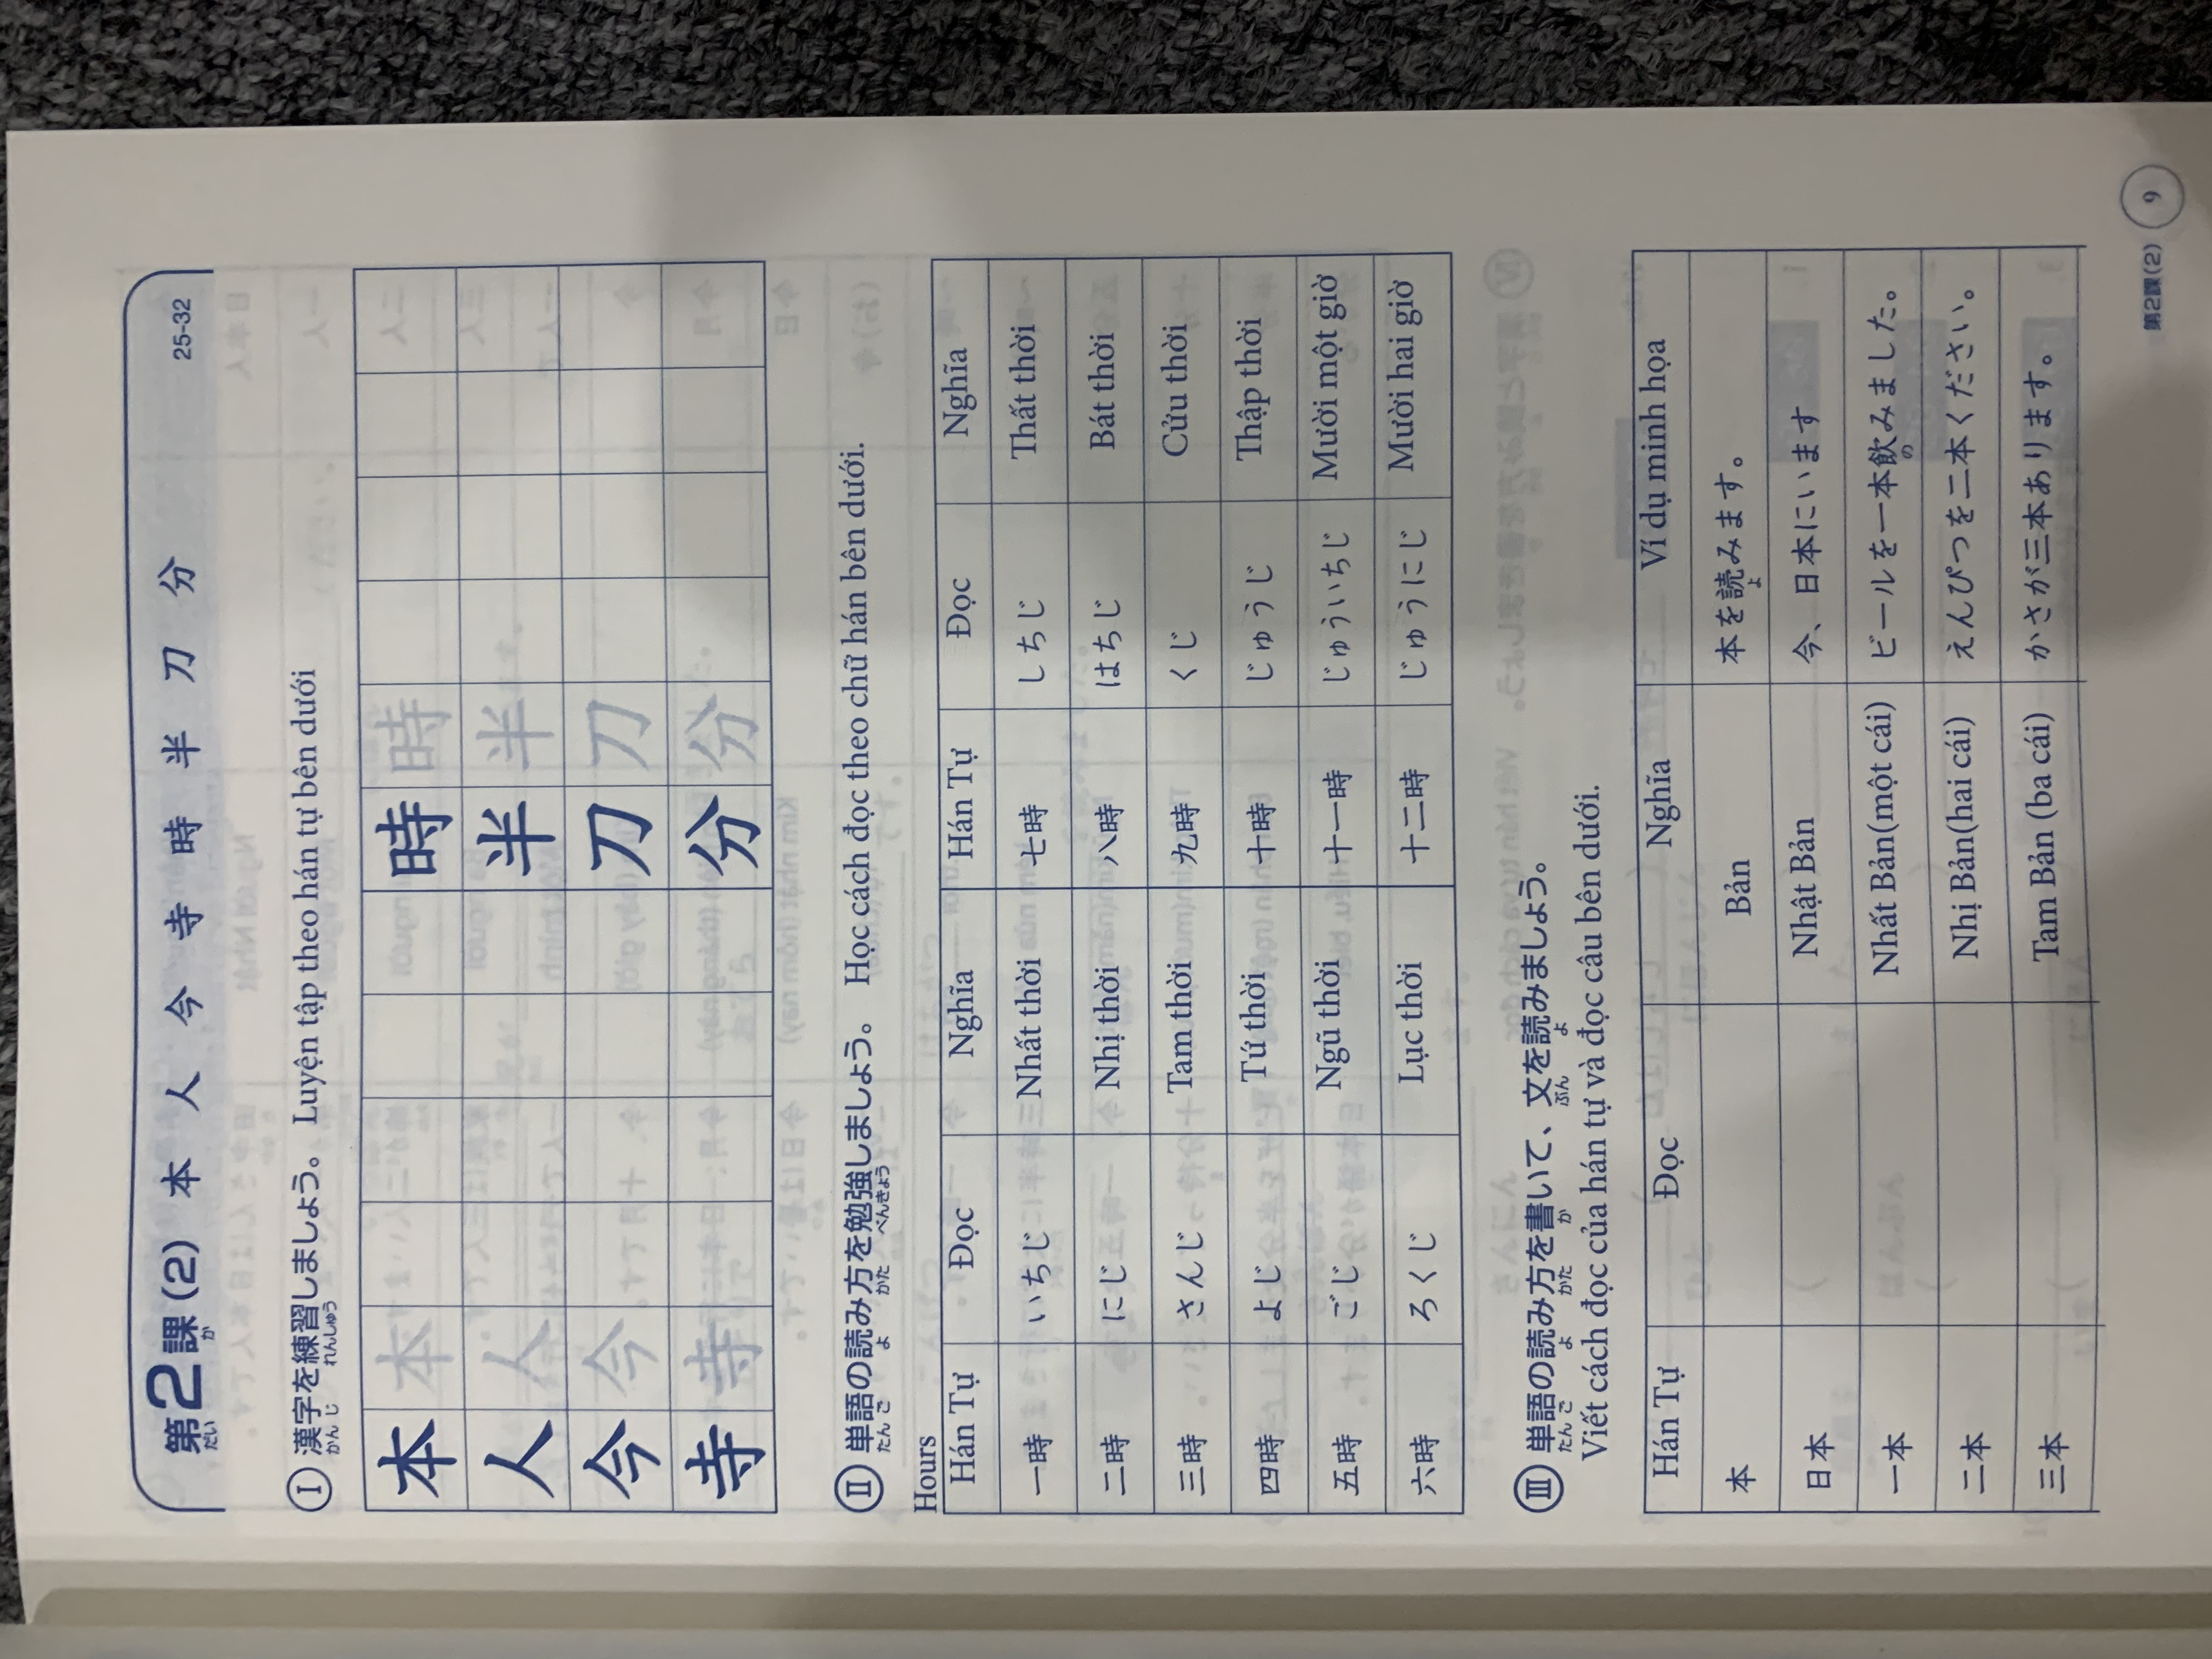 第2課(2) 本 人 今 寺 時 半 刀 分 25-32
だい か
Ⅰ 漢字を練習しましょう。 Luyện tập theo hán tự bên dưới
かんじ れんしゅう
本 本 時 時
人 人 半 半
今 今 刀 刀
寺 寺 分 分
Ⅱ 単語の読み方を勉強しましょう。 Học cách đọc theo chữ hán bên dưới.
たんご よ かた べんきょう
Hours
Hán Tự Đọc Nghĩa Hán Tự Đọc Nghĩa
一時 いちじ Nhất thời 七時 しちじ Thất thời
二時 にじ Nhị thời 八時 はちじ Bát thời
三時 さんじ Tam thời 九時 くじ Cửu thời
四時 よじ Tứ thời 十時 じゅうじ Thập thời
五時 ごじ Ngũ thời 十一時 じゅういちじ Mười một giờ
六時 ろくじ Lục thời 十二時 じゅうにじ Mười hai giờ
Ⅲ 単語の読み方を書いて、文を読みましょう。
たんご よ かた か ぶん よ
Viết cách đọc của hán tự và đọc câu bên dưới.
Hán Tự Đọc Nghĩa Ví dụ minh họa
本 Bản 本を読みます。
よ
日本 Nhật Bản 今、日本にいます
一本 Nhất Bản(một cái) ビールを一本飲みました。
の
二本 Nhị Bản(hai cái) えんぴつを二本ください。
三本 Tam Bản (ba cái) かさが三本あります。
第2課(2) 9